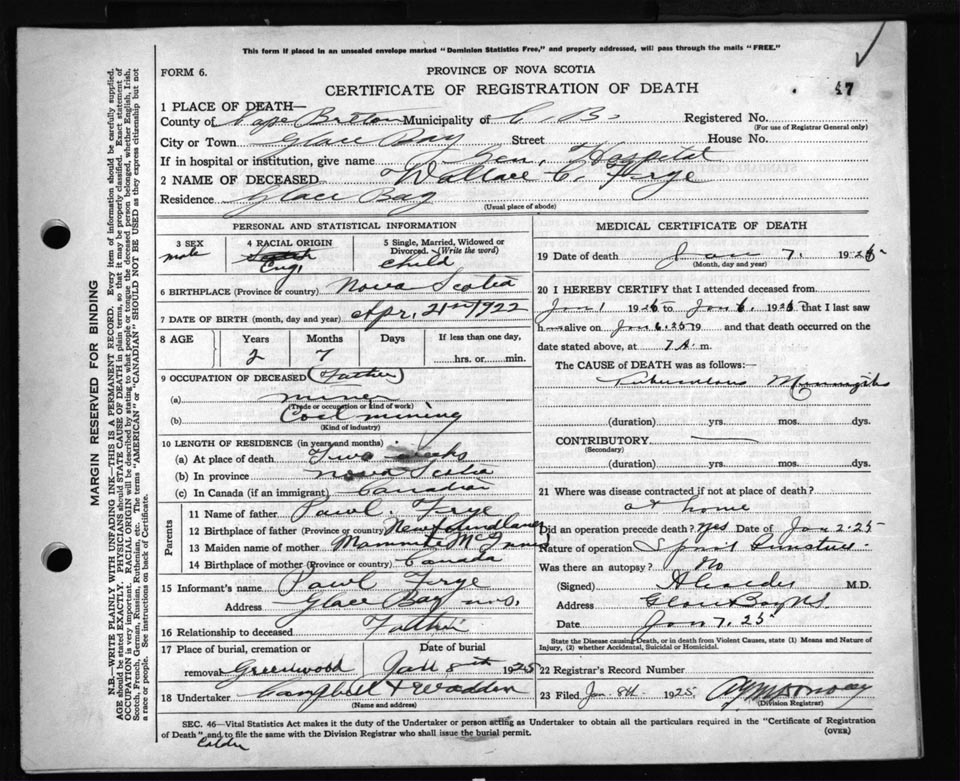 This form if placed in an unsealed envelope marked "Dominion Statistics Free," and properly addressed, will pass through the mails "FREE."
FORM 6.
PROVINCE OF NOVA SCOTIA
CERTIFICATE OF REGISTRATION OF DEATH
47
MARGIN RESERVED FOR BINDING
N.B.—WRITE PLAINLY WITH UNFADING INK—THIS IS A PERMANENT RECORD. Every item of information should be carefully supplied.
AGE should be stated EXACTLY. PHYSICIANS should STATE CAUSE OF DEATH in plain terms, so that it may be properly classified. Exact statement of
OCCUPATION is very important. RACIAL ORIGIN will be described by stating to what people or tongue the deceased person belonged, whether English, Irish,
Scotch, French, German, Russian, Ruthenian, etc. The terms "AMERICAN" or "CANADIAN" SHOULD NOT BE USED as they express citizenship but not
a race or people. See instructions on back of Certificate.
1 PLACE OF DEATH—
County of Cape Breton Municipality of C. B. Registered No.
(For use of Registrar General only)
City or Town Glace Bay Street House No.
If in hospital or institution, give name Gen. Hospital
2 NAME OF DECEASED Wallace C. Frye
Residence Glace Bay
(Usual place of abode)
PERSONAL AND STATISTICAL INFORMATION
3 SEX male
4 RACIAL ORIGIN Scotch Eng.
5 Single, Married, Widowed or Divorced. (Write the word) child
6 BIRTHPLACE (Province or country) Nova Scotia
7 DATE OF BIRTH (month, day and year) Apr. 21st 1922
8 AGE Years Months Days If less than one day,
2 7 hrs. or min.
9 OCCUPATION OF DECEASED (Father)
(a) miner
(Trade or occupation or kind of work)
(b) Coal mining
(Kind of industry)
10 LENGTH OF RESIDENCE (in years and months)
(a) At place of death Two weeks
(b) In province Nova Scotia
(c) In Canada (if an immigrant) Canadian
Parents
11 Name of father Pawl Frye
12 Birthplace of father (Province or country) Newfoundland
13 Maiden name of mother
14 Birthplace of mother (Province or country) Canada
15 Informant's name Pawl Frye
Address Glace Bay N.S.
16 Relationship to deceased Father
17 Place of burial, cremation or Date of burial
removal Greenwood Jan 8th 1925
18 Undertaker Campbell & Wadden
(Name and address)
MEDICAL CERTIFICATE OF DEATH
19 Date of death Jan 7. 1925
(Month, day and year)
20 I HEREBY CERTIFY that I attended deceased from
Jan 1 1925 to Jan 6. 1925 that I last saw
h alive on Jan 6. 25 19 and that death occurred on
date stated above, at 7 A. m.
The CAUSE OF DEATH was as follows:—
Tuberculous Meningitis
(duration) yrs. mos. dys.
CONTRIBUTORY
(Secondary)
(duration) yrs. mos. dys.
21 Where was disease contracted if not at place of death?
at home
Did an operation precede death? Yes Date of Jan 2. 25
Nature of operation Spinal
Was there an autopsy? No
(Signed) M.D.
Address Glace Bay NS.
Date Jan 7. 25
State the Disease causing Death, or in death from Violent Causes, state (1) Means and Nature of
Injury, (2) whether Accidental, Suicidal or Homicidal.
22 Registrar's Record Number
23 Filed Jan 8th 1925
(Division Registrar)
SEC. 46—Vital Statistics Act makes it the duty of the Undertaker or person acting as Undertaker to obtain all the particulars required in the "Certificate of Registration
of Death" and to file the same with the Division Registrar who shall issue the burial permit.
(OVER)